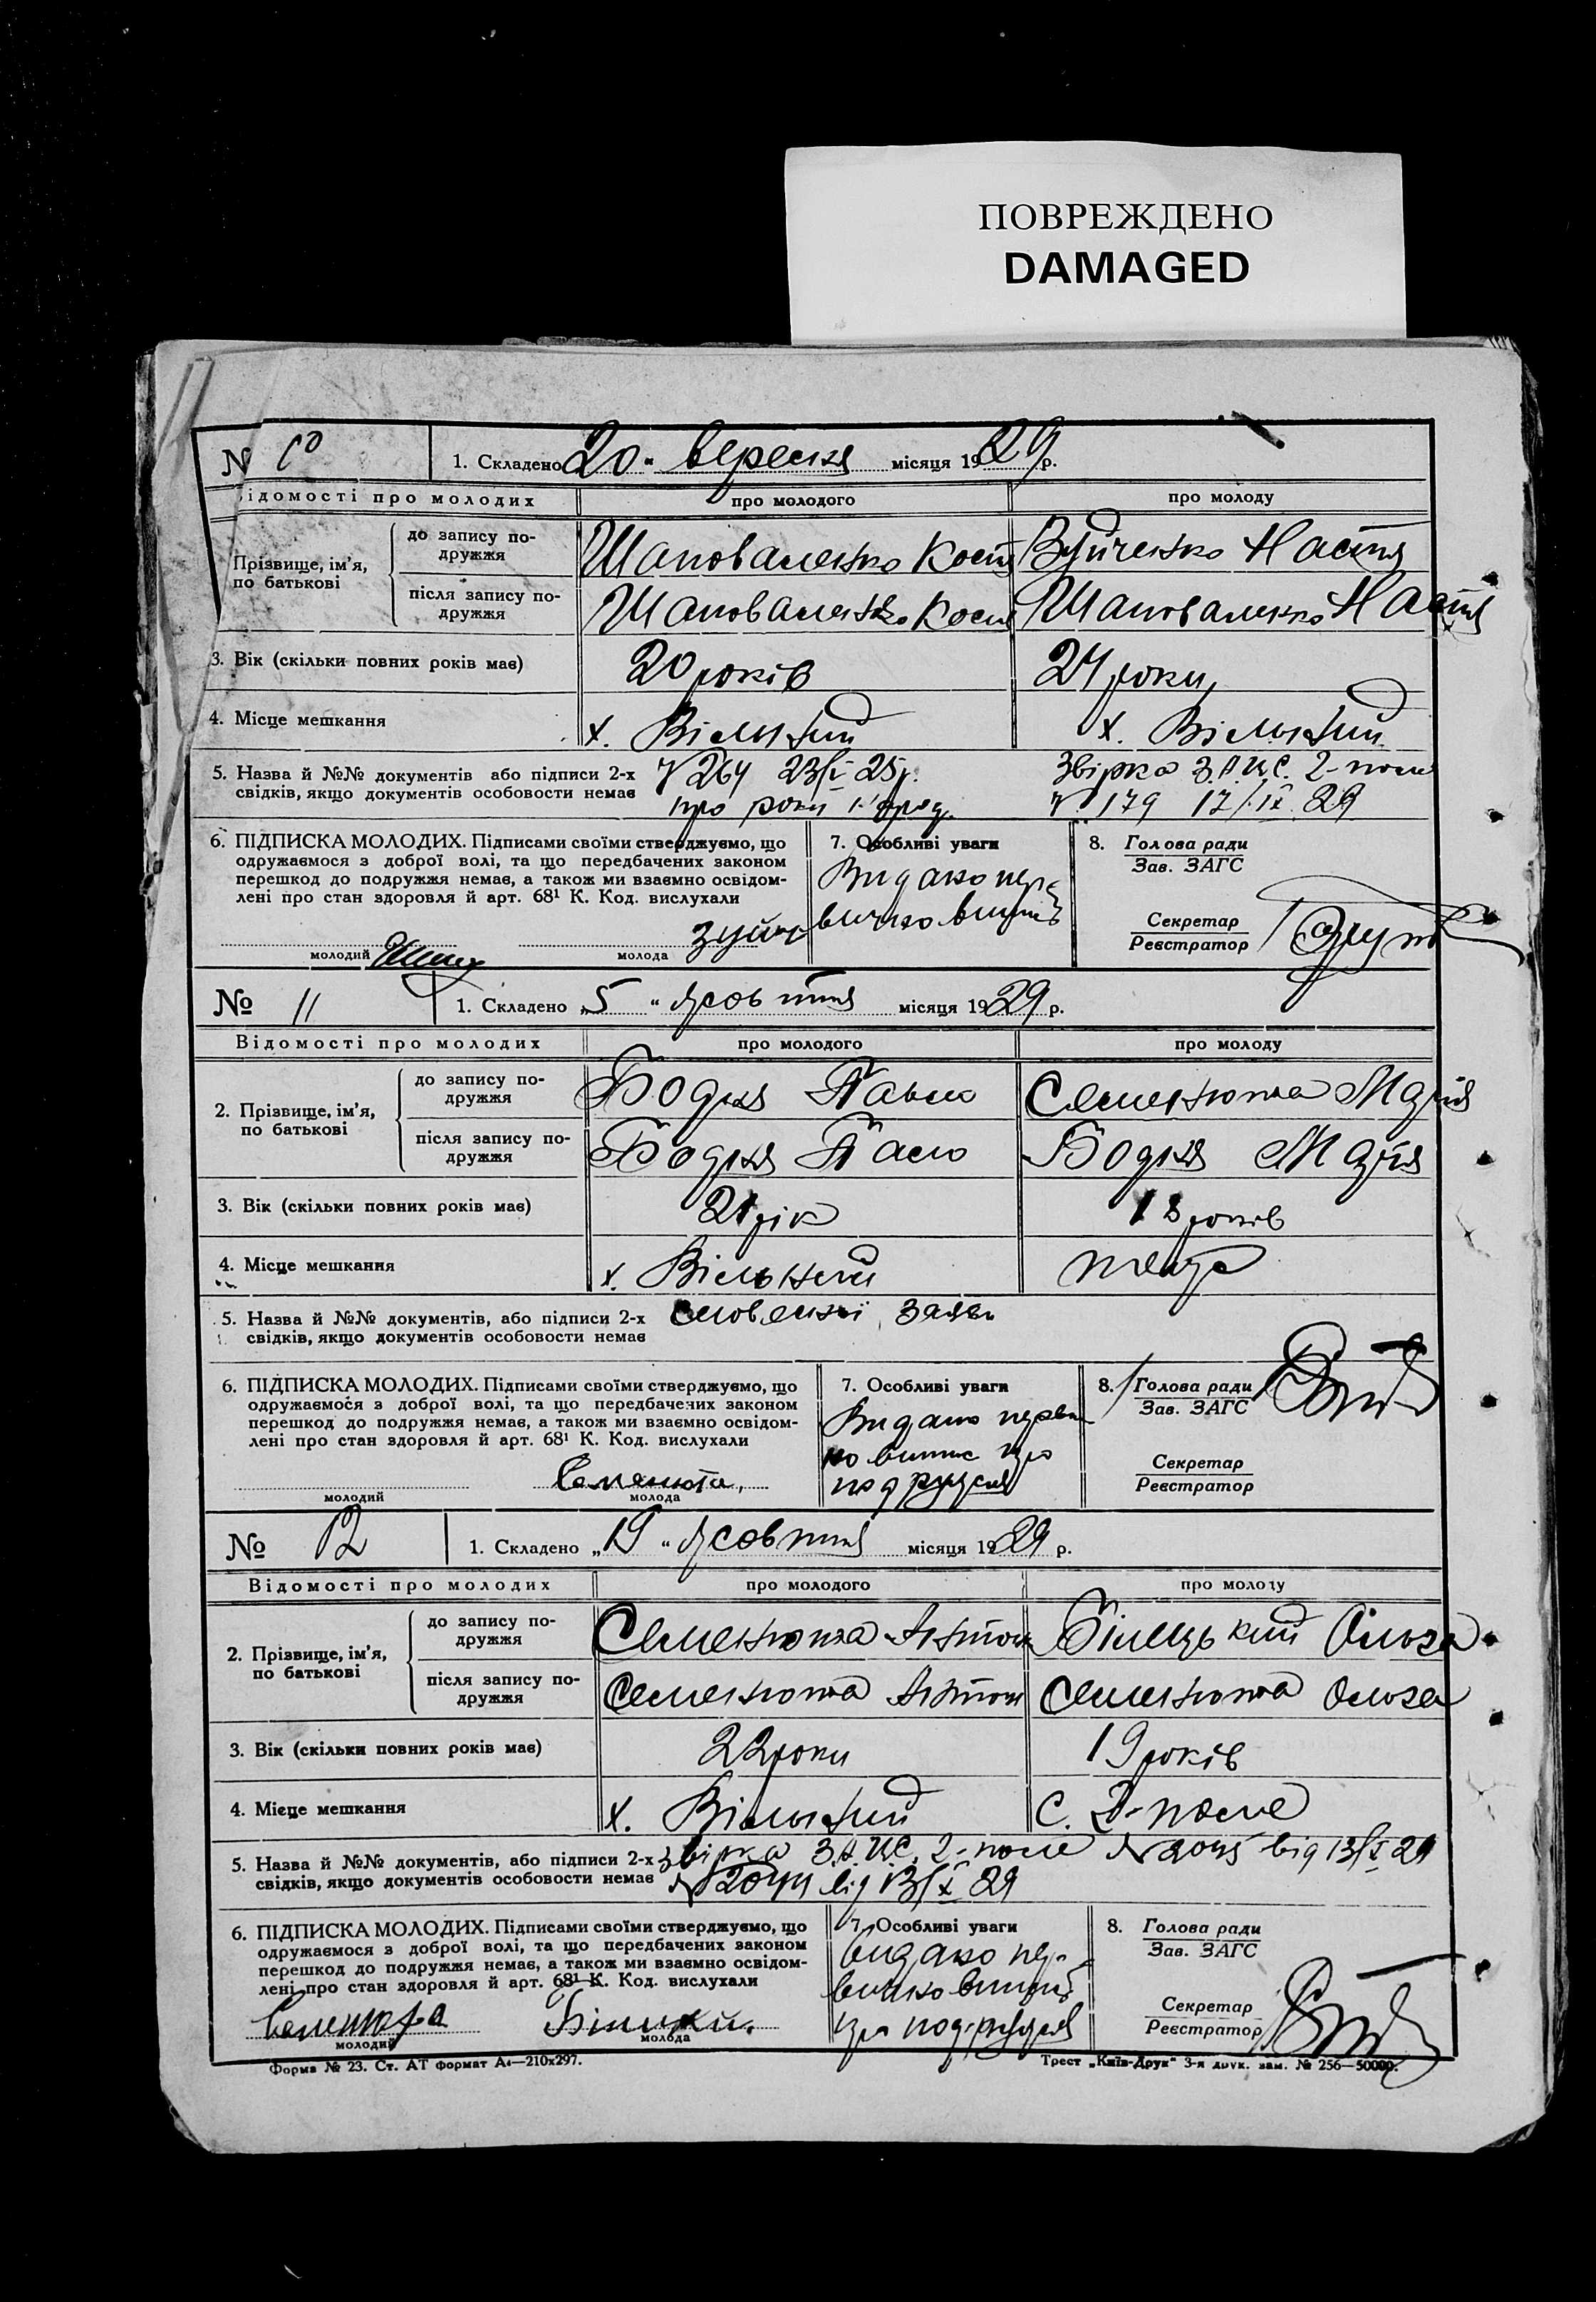 ПОВРЕЖДЕНО
DAMAGED
№ 10
1. Складено 20 " вересня місяця 1929 р.
ідомості про молодих про молодого про молоду
Прізвище, ім'я, по батькові
до запису по-дружжя Шаповаленко Кост Зуйченко Настя
після запису по-дружжя Шаповаленко Кост Шаповаленко Настя
3. Вік (скільки повних років має) 20 років 24 роки
4. Місце мешкання х. Вільний х. Вільний
5. Назва й №№ документів або підписи 2-х № 264 23/ 25 р. Звірка З.А.Ц.С. 2-поле
свідків, якщо документів особовости немає про роки № 179 17/IX 29
6. ПІДПИСКА МОЛОДИХ. Підписами своїми стверджуємо, що
одружаємося з доброї волі, та що передбачених законом
перешкод до подружжя немає, а також ми взаємно освідом-
лені про стан здоровля й арт. 68¹ К. Код. вислухали
молодий молода
7. Особливі уваги
Видано пер-
вично випис
8. Голова ради
Зав. ЗАГС
Секретар
Реєстратор
№ 11
1. Складено „5 " жовтня місяця 1929 р.
Відомості про молодих про молодого про молоду
2. Прізвище, ім'я, по батькові
до запису по-дружжя Бодня Павло Семенюта Марія
після запису по-дружжя Бодня Пасло Бодня Марія
3. Вік (скільки повних років має) 21 рік 18 років
4. Місце мешкання х. Вільний
5. Назва й №№ документів, або підписи 2-х заяви
свідків, якщо документів особовости немає
6. ПІДПИСКА МОЛОДИХ. Підписами своїми стверджуємо, що
одружаємося з доброї волі, та що передбачених законом
перешкод до подружжя немає, а також ми взаємно освідом-
лені про стан здоровля й арт. 68¹ К. Код. вислухали
Семенюта
молодий молода
7. Особливі уваги
Видано первич
но випис про
подружжя
8. Голова ради
Зав. ЗАГС
Секретар
Реєстратор
№ 12
1. Складено „19 " жовтня місяця 1929 р.
Відомості про молодих про молодого про молоду
2. Прізвище, ім'я, по батькові
до запису по-дружжя Семенюта Антон Білецький Ольга
після запису по-дружжя Семенюта Антон Семенюта Ольга
3. Вік (скільки повних років має) 22 роки 19 років
4. Місце мешкання х. Вільний с. 2-поле
5. Назва й №№ документів, або підписи 2-х звірка З.А.Ц.С. 2-поле № 2045 від 13/X 29
свідків, якщо документів особовости немає № 2044 від 13/X 29
6. ПІДПИСКА МОЛОДИХ. Підписами своїми стверджуємо, що
одружаємося з доброї волі, та що передбачених законом
перешкод до подружжя немає, а також ми взаємно освідом-
лені про стан здоровля й арт. 68¹ К. Код. вислухали
Семенюта
молодий молода
7. Особливі уваги
видано пер-
вично випис
про подружжя
8. Голова ради
Зав. ЗАГС
Секретар
Реєстратор
Форма № 23. Ст. АТ формат А4—210x297.
Трест „Київ-Друк" 3-я друк. зам. № 256—50000.